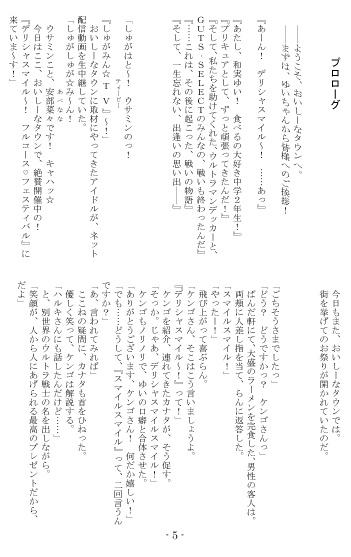 プロローグ
――ようこそ、おいしーなタウンへ。
――まずは、ゆいちゃんから皆様へのご挨拶！
『あーん！　デリシャスマイル～！　……あっ』
『あたし、和実ゆい！　食べるの大好き中学2年生！』
『プリキュアとして、ずっと頑張ってきたんだ！』
『そして、私たちを助けてくれた、ウルトラマンデッカーと、
GUTS-SELECTのみんなの、戦いも終わったんだ』
『……これは、その後に起こった、戦いの物語』
『そして、一生忘れない、出逢いの思い出――』
「しゅがはと～！　ウサミンのっ！」
ティービー
『しゅがみん☆TV～！』
おいしーなタウンに取材にやってきたアイドルが、ネット
配信動画を生中継していた。
「しゅがしゅが☆み～ん！
あべなな
ウサミンこと、安部菜々です！　キャハッ☆
今日はここ、おいしーなタウンで、絶賛開催中の！
『デリシャスマイル～！　フルコース♡フェスティバル』に
来ていま～す！」
今日もまた、おいしーなタウンでは、
街を挙げてのお祭りが開かれていたのだ。
「ごちそうさまでしたっ」
「どう？　どうですかっ？　ケンゴさんっ」
ぱんだ軒にて、大盛のラーメンを完食した、男性の客人は。
両頬に人差し指を当て、らんに返答した。
「スマイルスマイル！」
「やったー！」
飛び上がって喜ぶらん。
「ケンゴさん、そこはこう言いましょうよ。
『デリシャスマイル～！』って！」
ケンゴを紹介、連れてきたカナタが、そう促す。
「そっか。じゃあ、デリシャスマイルスマイル！」
ケンゴもノリノリで、ゆいの口癖と合体させた。
「ありがとうございます、ケンゴさん！　何だか嬉しい！
でも……どうして、『スマイルスマイル』って、二回言うん
ですか？」
「あ、言われてみれば」
ここねの疑問に、カナタも首をひねった。
優しく笑って、ケンゴは解説する。
「ハルキさんにも話したんだけど……」
と、別世界のウルトラ戦士の名を出しながら。
「笑顔が、人から人にあげられる最高のプレゼントだから、
だよ」
- 5 -